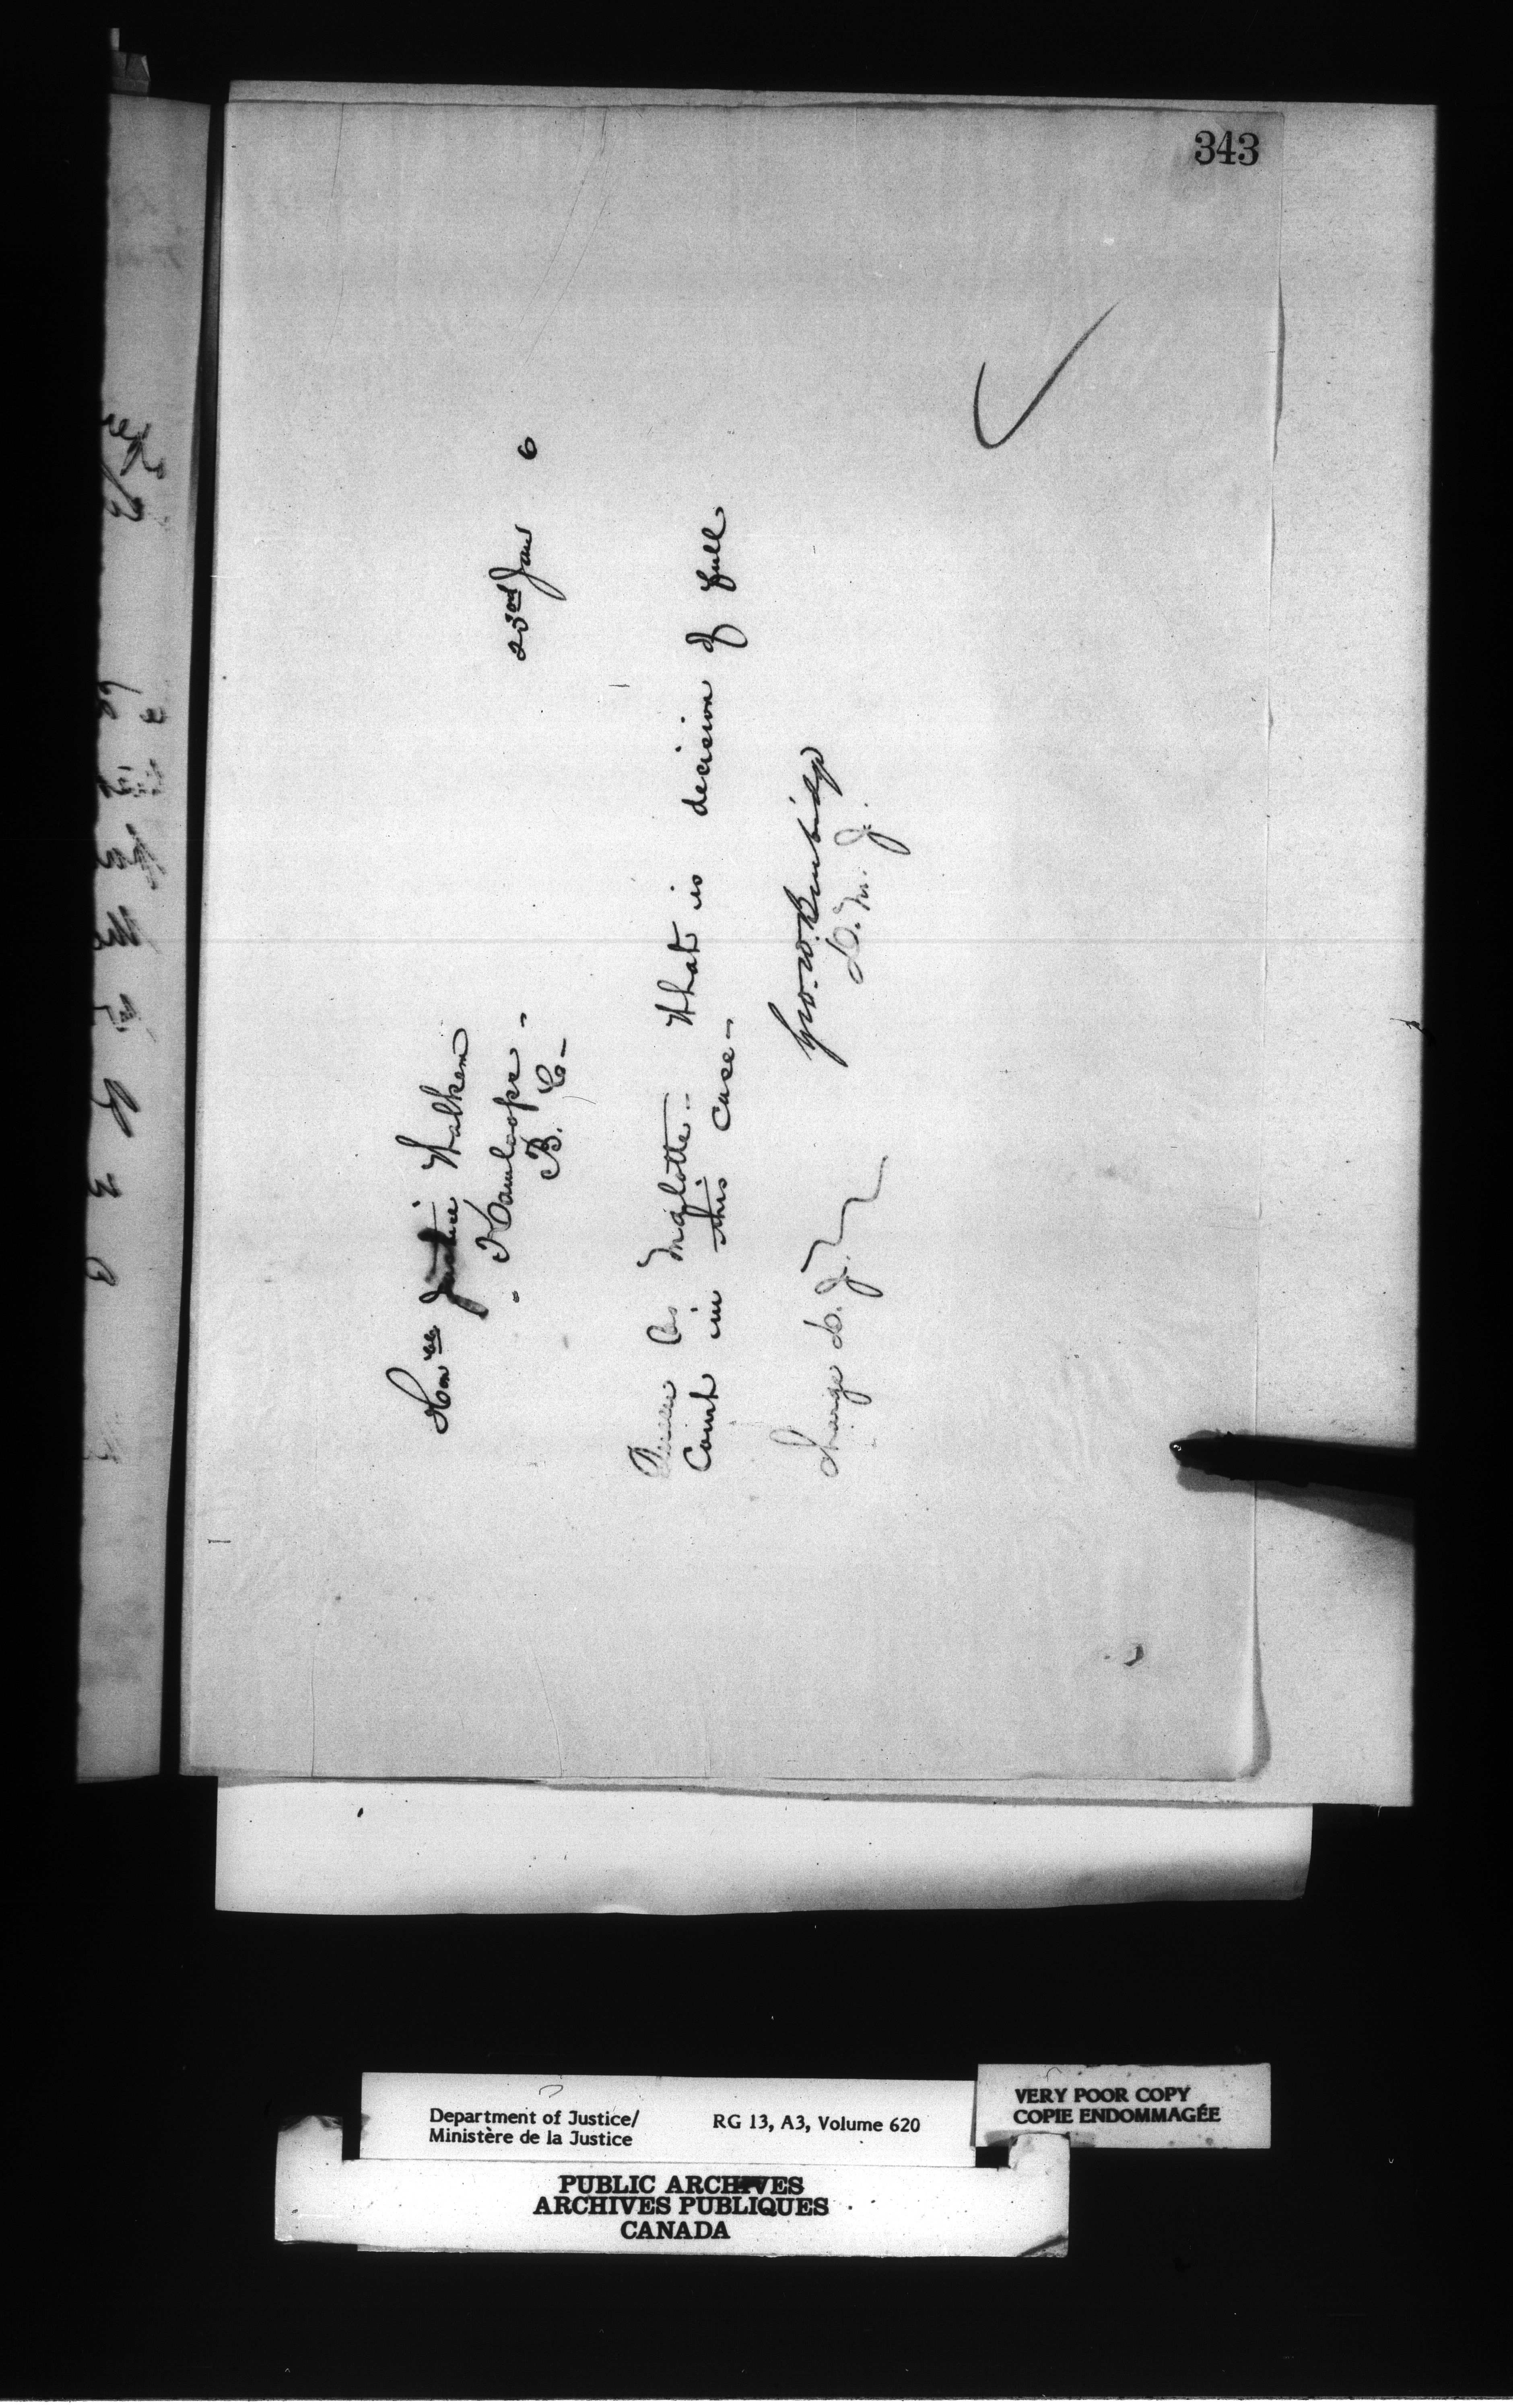 343
23rd Jany 6
Honble Justice Walkem
Kamloops -
B. C. -
Queen vs Malotte - What is decision of full
Court in this case -
Geo. W. Burbidge
D. M. J.
Charge D. J.
Department of Justice/
Ministère de la Justice
RG 13, A3, Volume 620
VERY POOR COPY
COPIE ENDOMMAGÉE
PUBLIC ARCHIVES
ARCHIVES PUBLIQUES
CANADA